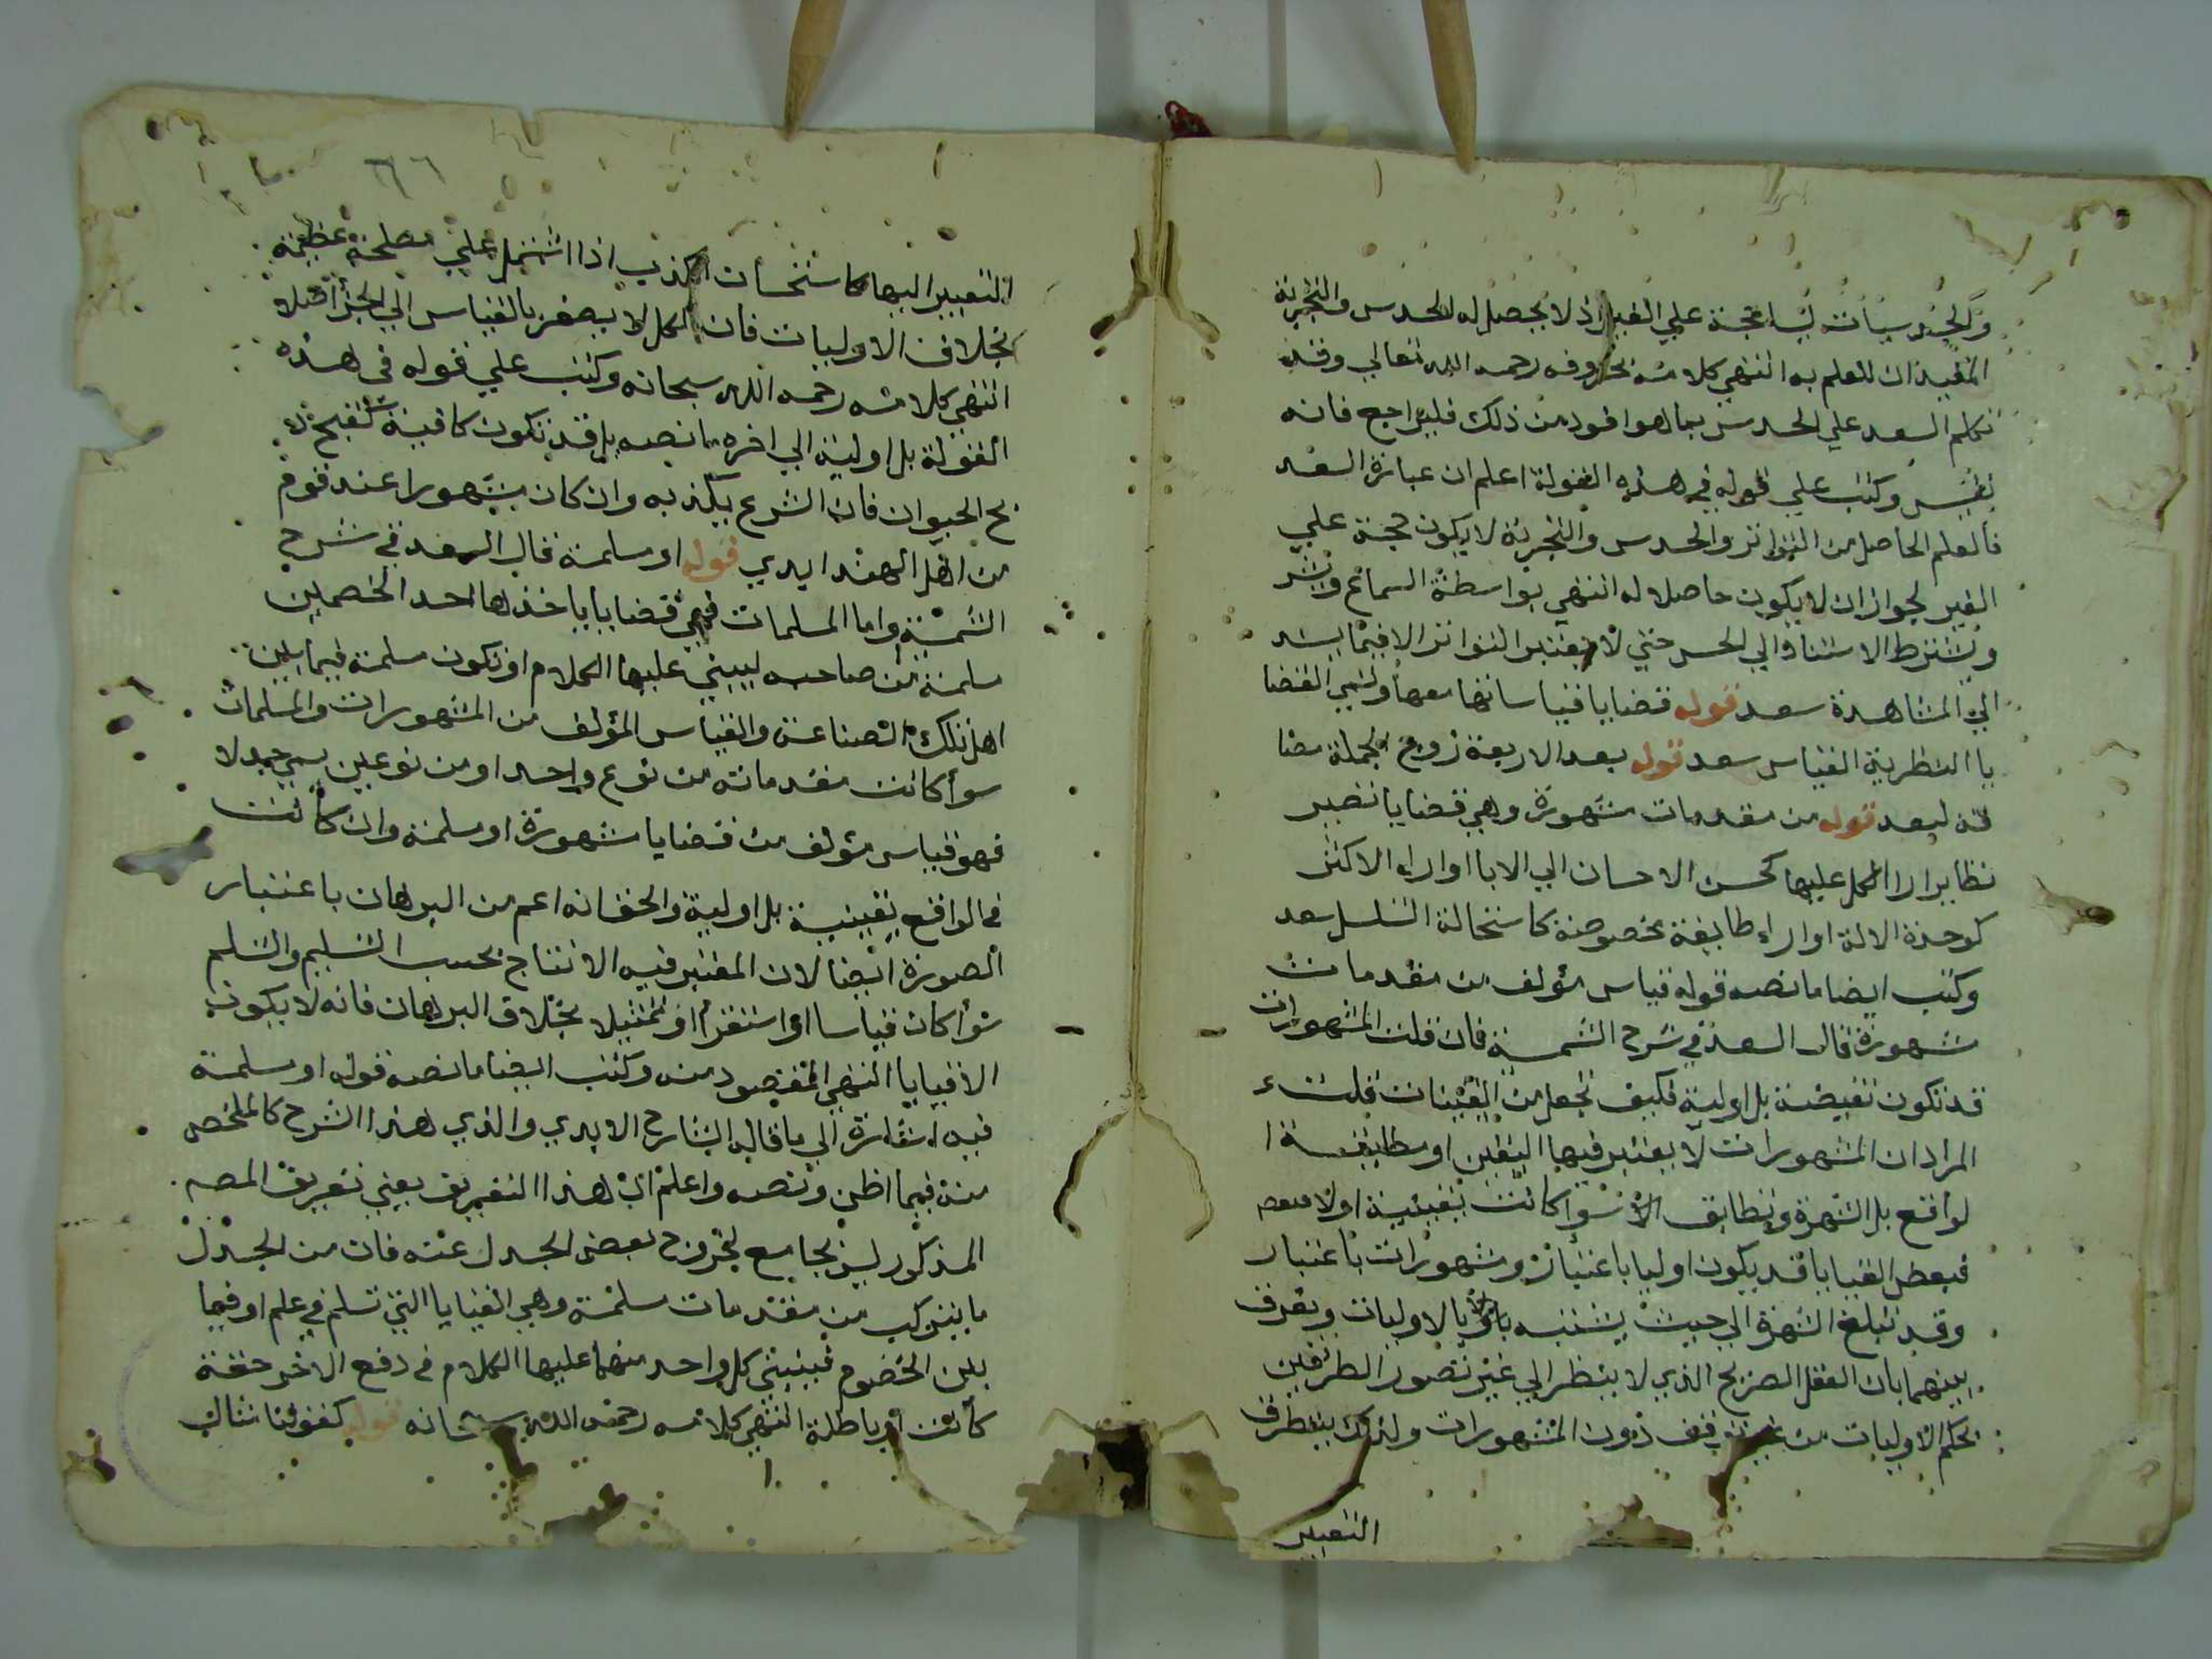 والحدسيات ليسا حجة علي الغير اذ لا يحصل له الحدس والتجربة
المفيدان للعلم به انتهي كلامه بحروفه رحمه الله تعالي وقد
تكلم السعد علي الحدس بما هو افود من ذلك فليراجع فانه
نفيس وكتب علي قوله في هذه القولة اعلم ان عبارة السعد
فالعلم الحاصل من التواتر والحدس والتجربة لا يكون حجة علي
الغير لجواز ان لا يكون حاصلا له انتهي بواسطة السماع
ويشترط الاستناد الي الحس حتي لا يعتبر التواتر الا فيما يسند
الي المشاهدة سعد قوله قضايا قياساتها معها وتسمي القضا
يا النظرية القياس سعد قوله بعد الاربعة زوج لجملة مضا
فة لبعد قوله من مقدمات مشهورة وهي قضايا تصير
نظاير ارا الكل عليها كحسن الاحسان الي الابا او اراء الاكثر
كوحدة الالة او اراء طايفة مخصوصة كاستحالة التسلسل سعد
وكتب ايضا ما نصه قوله قياس مؤلف من مقدمات
مشهورة قال السعد في شرح الشمسية فان قلت المشهورات
قد تكون نقيضة بل اولية فكيف تجعل من القينات قلت
المراد ان المشهورات لا يعتبر فيها اليقين او مطابقة ا
لواقع بل الشهرة وتطابق الارا سوا كانت يقينية اولا
فبعض القيايا قد يكون اوليا باعتبار ومشهورات باعتبار
وقد تبلغ الشهرة الي حيث يشتبه بالاوليات ويفرق
بينهما بان العقل الصريح الذي لا ينظر الي غير تصور الطرفين
يحكم الاوليات من غير توقف دون المشهورات ولذلك يتطرق
التعبير
التعبير اليها كاستحسان الكذب اذا اشتمل علي مصلحة عظيمة
بخلاف الاوليات فان الكل لا يصغر بالقياس الي الجزأ اصلا
انتهي كلامه رحمه الله سبحانه وكتب علي قوله في هذه
القولة بل اولية الي اخره ما نصه بل قد تكون كاذبة كقبح ذ
بح الحيوان فان الشرع يكذبه وان كان مشهورا عند قوم
من اهل الهند ايدي قوله او مسلمة قال السعد في شرح
الشمسية واما المسلمات فهي قضايا ياخذها احد الخصمين
مسلمة من صاحبه ليبني عليها الكلام او تكون مسلمة فيما بين
اهل تلك الصناعة والقياس المؤلف من المشهورات والمسلمات
سوأ كانت مقدماته من نوع واحد او من نوعين يسمي جدلا
فهو قياس مؤلف من قضايا مشهورة او مسلمة وان كانت
في الواقع يقينية بل اولية والحق انه اعم من البرهان باعتبار
الصورة ايضا لان المعتبر فيه الانتاج بحسب التسليم والتسلم
سوأ كان قياسا او استقرأ او تمثيلا بخلاف البرهان فانه لا يكون
الا قيايا انتهي المقصود منه وكتب ايضا ما نصه قوله او مسلمة
فيه اشارة الي ما قاله الشارح الايدي والذي هذا الشرح كالملخص
منه فيما اظن ونصه واعلم ان هذا التعريف يعني تعريف المصه
المذكور ليس بجامع لخروج بعض الجدل عنه فان من الجدل
ما يتركب من مقدمات مسلمة وهي القيايا التي تسلم في علم او فيما
بين الخصوم فيبني كل واحد منهما عليها الكلام في دفع الاخر حقة
كانت او باطلة انتهي كلامه رحمه الله سبحانه قوله كقولنا